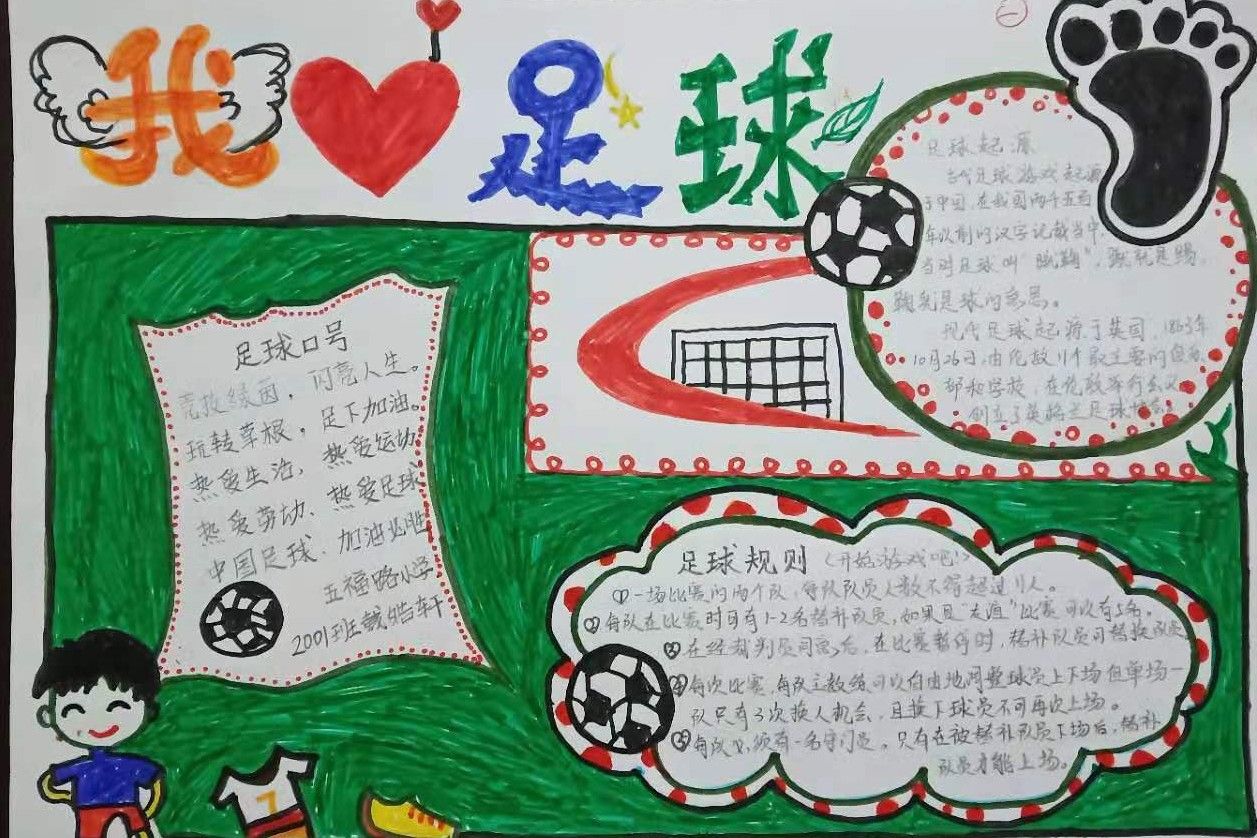 我 足球
一
足球起源
当代足球游戏起源
于中国,在我国两千五百
年以前的汉字记载当中,
当时足球叫"蹴鞠",蹴就是踢,
鞠就是球的意思。
现代足球起源于英国,1863年
10月26日,由伦敦11个最主要的俱乐
部和学校,在伦敦举行会议
创立了英格兰足球协会
足球口号
竞技绿茵,闪亮人生。
玩转草根,足下加油。
热爱生活,热爱运动
热爱劳动、热爱足球
中国足球、加油必胜
五福路小学
2001班 皓轩
足球规则(开始游戏吧!)
①一场比赛的两个队,每队队员人数不得超过11人。
②每队在比赛时可有1-2名替补队员,如果是"友谊"比赛可以有5名。
③在经裁判员同意后,在比赛暂停时,替补队员可替换队员
④每次比赛,每队主教练可以自由地调整球员上下场但单场一
队只有3次换人机会,且换下球员不可再次上场。
⑤每队必须有一名守门员。只有在被替补队员下场后,替补
队员才能上场。
7